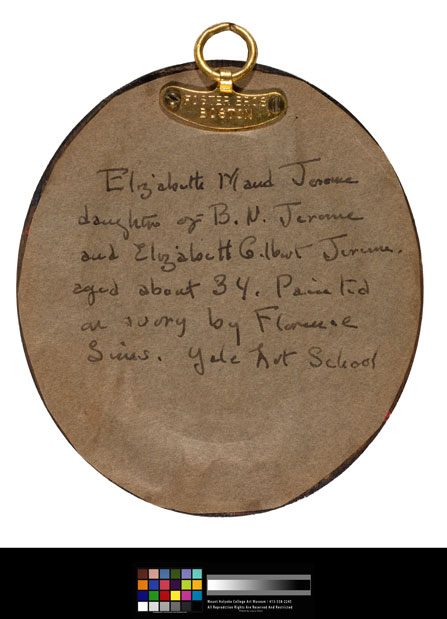 FOSTER BROS
BOSTON
Elizabeth Maud Jerome
daughter of B. N. Jerome
and Elizabeth Gilbert Jerome.
aged about 34. Painted
on ivory by Florence
Sims. Yale Art School
Mount Holyoke College Art Museum | 413-538-2245
All Reproduction Rights Are Reserved And Restricted